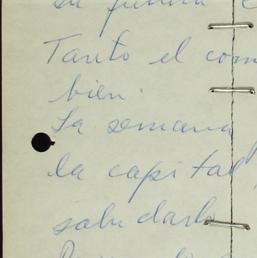 su futura
Tanto el com
bien.
La semana
la capital,
saludarlo